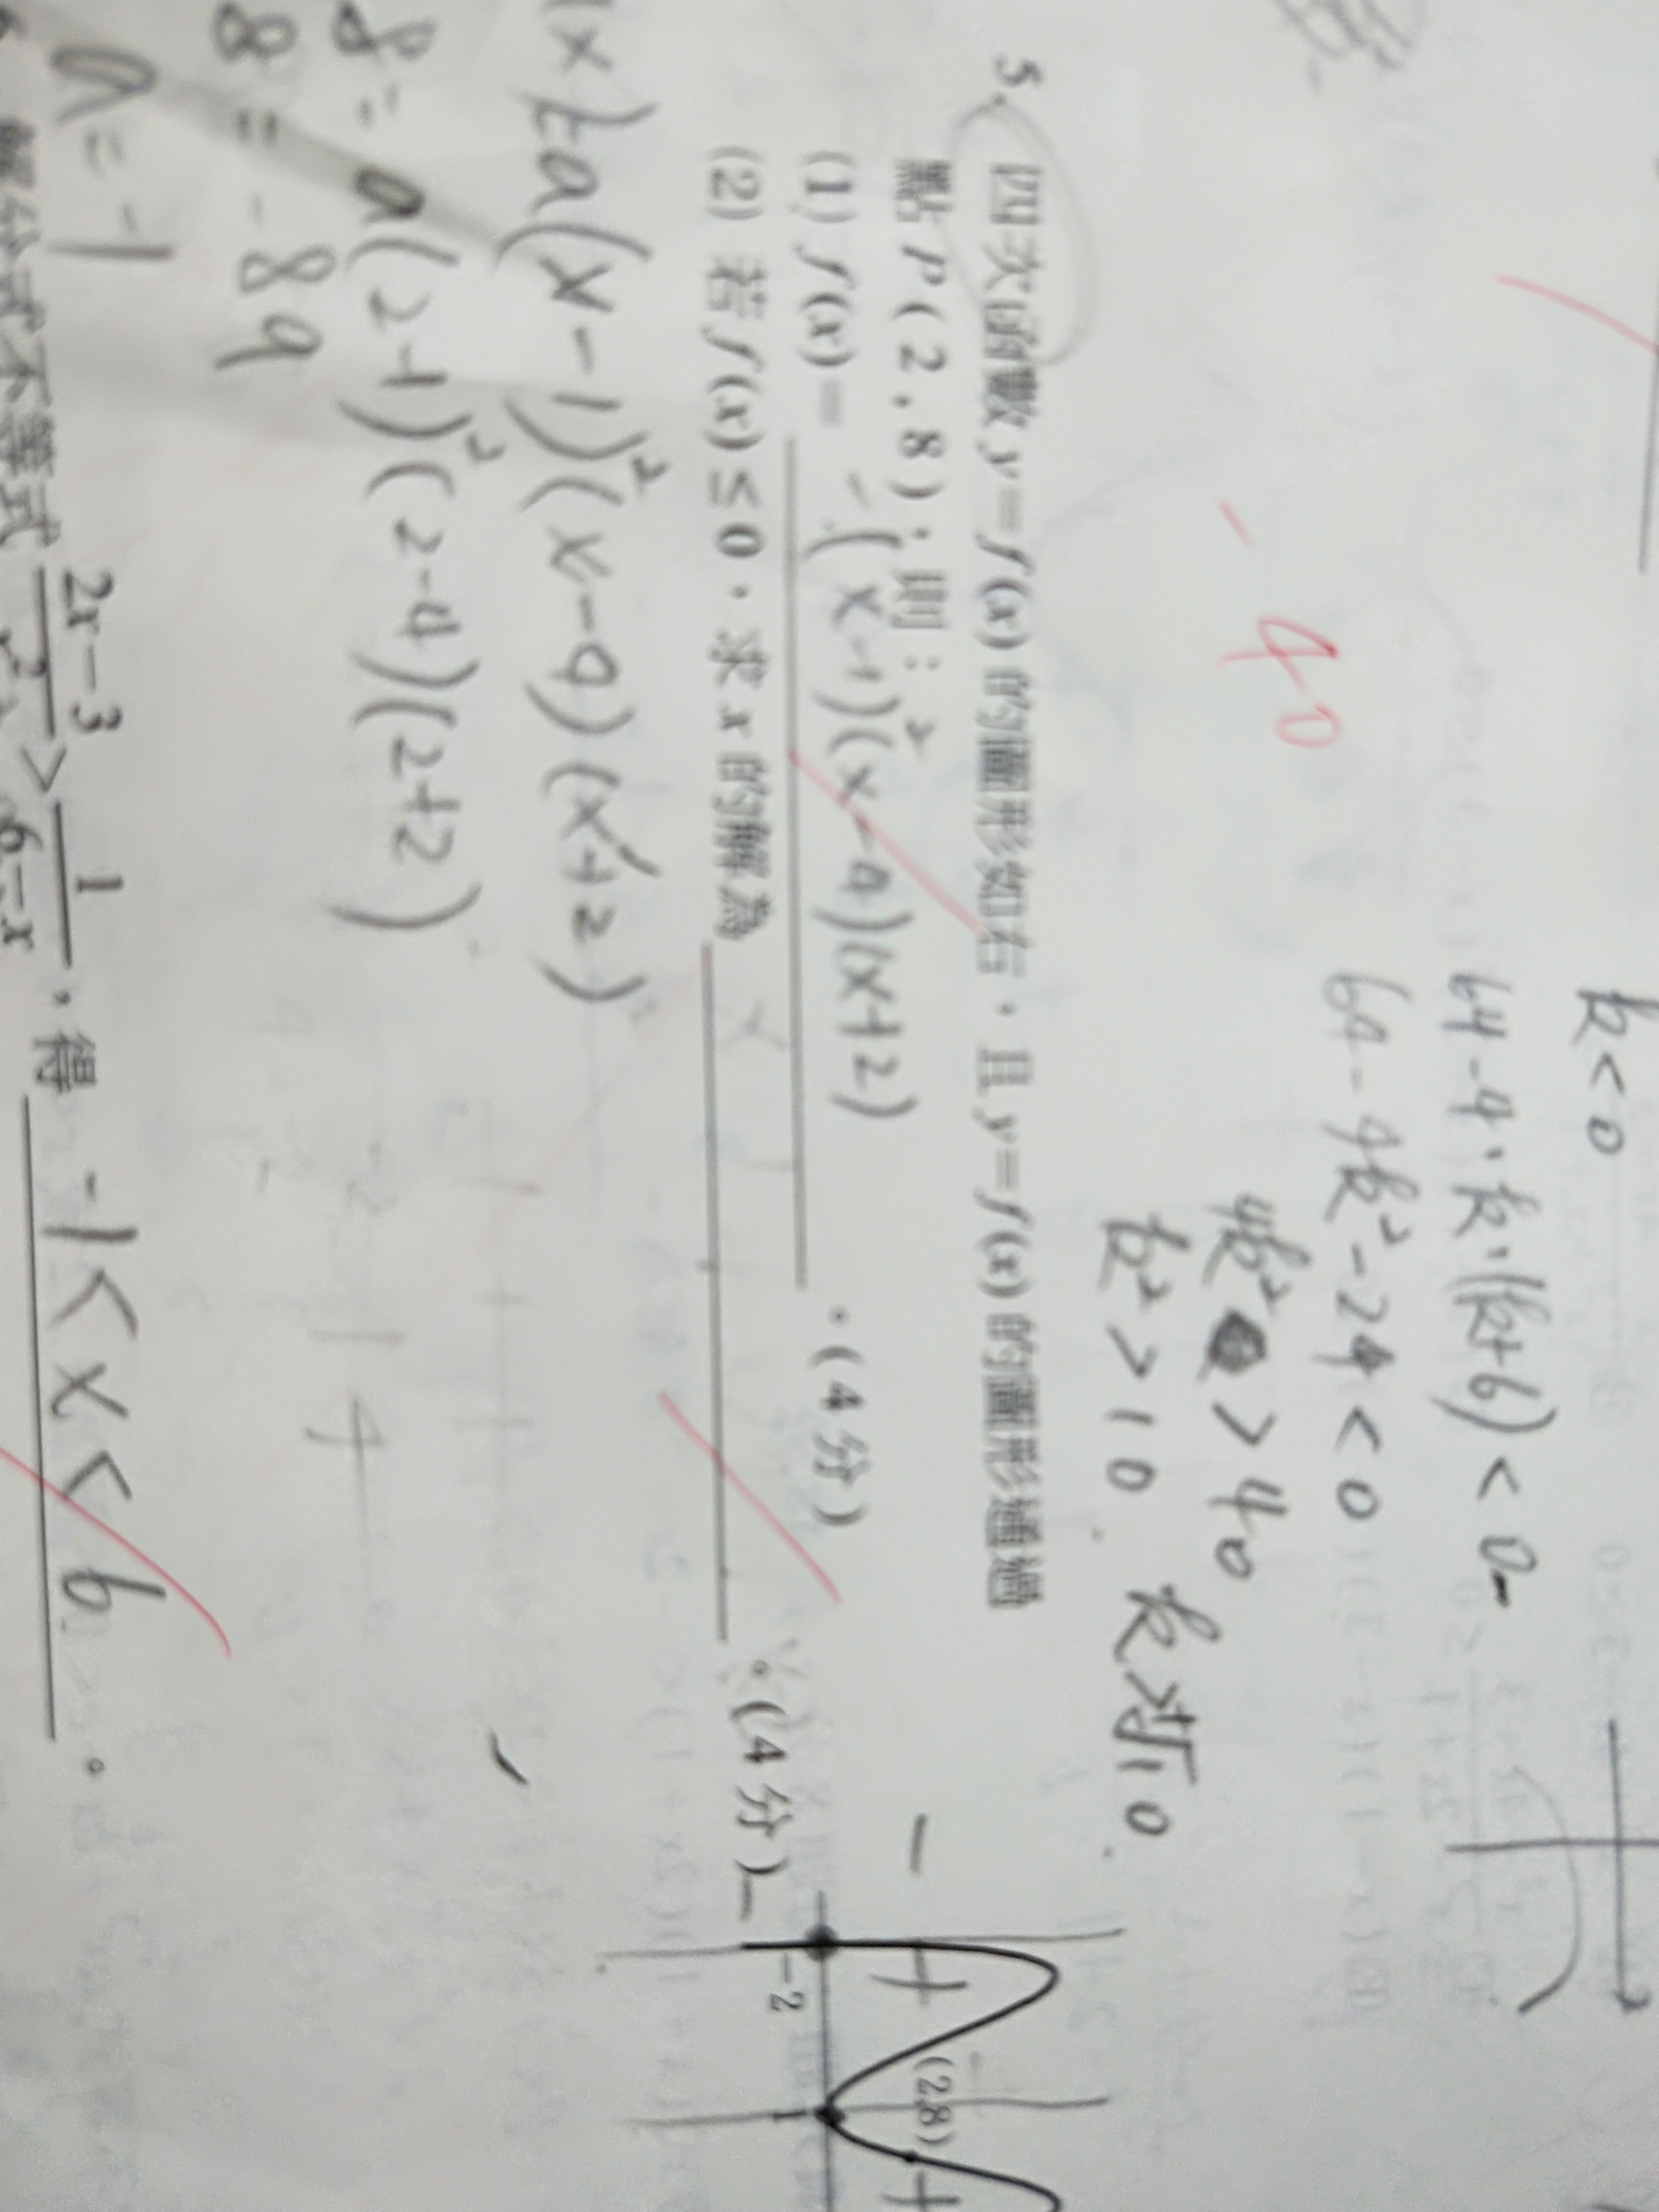 k<0
64-4·k·(k+6)<0
64-4k²-24<0
-40
4k²>40
k²>10
k>√10
5. 四次函數y=f(x)的圖形如右,且y=f(x)的圖形通過
點P(2,8);則:
(1) f(x)= -(x-1)²(x-4)(x+2) 。(4分)
(2) 若f(x)≤0,求x的解為 。(4分)
(2,8)
-2
1
a(x-1)²(x-4)(x+2)
8=a(2-1)²(2-4)(2+2)
8=-8a
a=-1
解分式不等式 2x-3 > 1/(6-x),得 -1<x<6 。